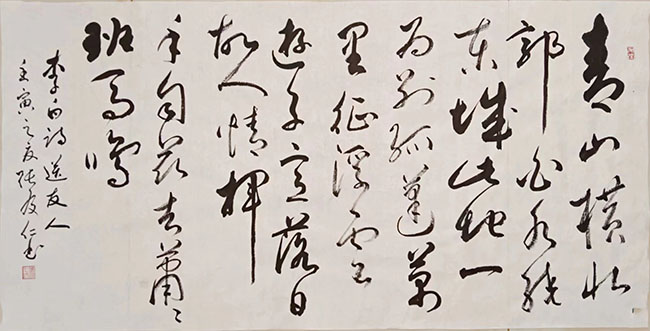 青山横北
郭白水绕
东城此地一
为别孤蓬万
里征浮云
游子意落日
故人情挥
手自兹去萧〻
班马鸣
李白诗送友人
壬寅之夏张友仁书